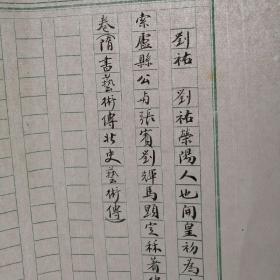 劉祐　劉祐滎陽人也開皇初為
索盧縣公与張賓劉輝馬顯定秝著
卷(隋書藝術傳北史藝術傳)